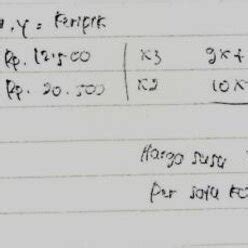 , y = Keripik
Rp. 12.500 | x3 9x +
Rp. 20.500 | x2 10x
Harga susu
per satu